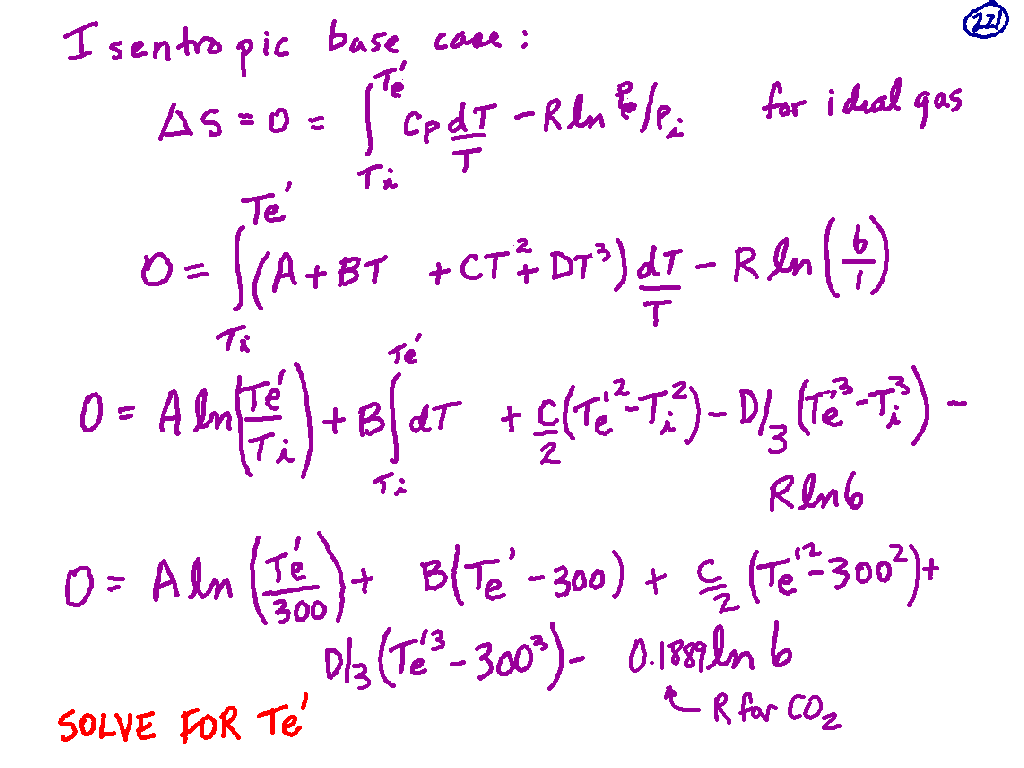 221
Isentropic base case:
ΔS = 0 = ∫_{Ti}^{Te'} Cp dT/T - R ln Pe/Pi for ideal gas
0 = ∫_{Ti}^{Te'} (A + BT + CT² + DT³) dT/T - R ln (6/1)
0 = A ln(Te'/Ti) + B ∫_{Ti}^{Te'} dT + C/2 (Te'² - Ti²) - D/3 (Te'³ - Ti³) -
R ln 6
0 = A ln (Te'/300) + B(Te' - 300) + C/2 (Te'² - 300²) +
D/3 (Te'³ - 300³) - 0.1889 ln 6
R for CO₂
SOLVE FOR Te'